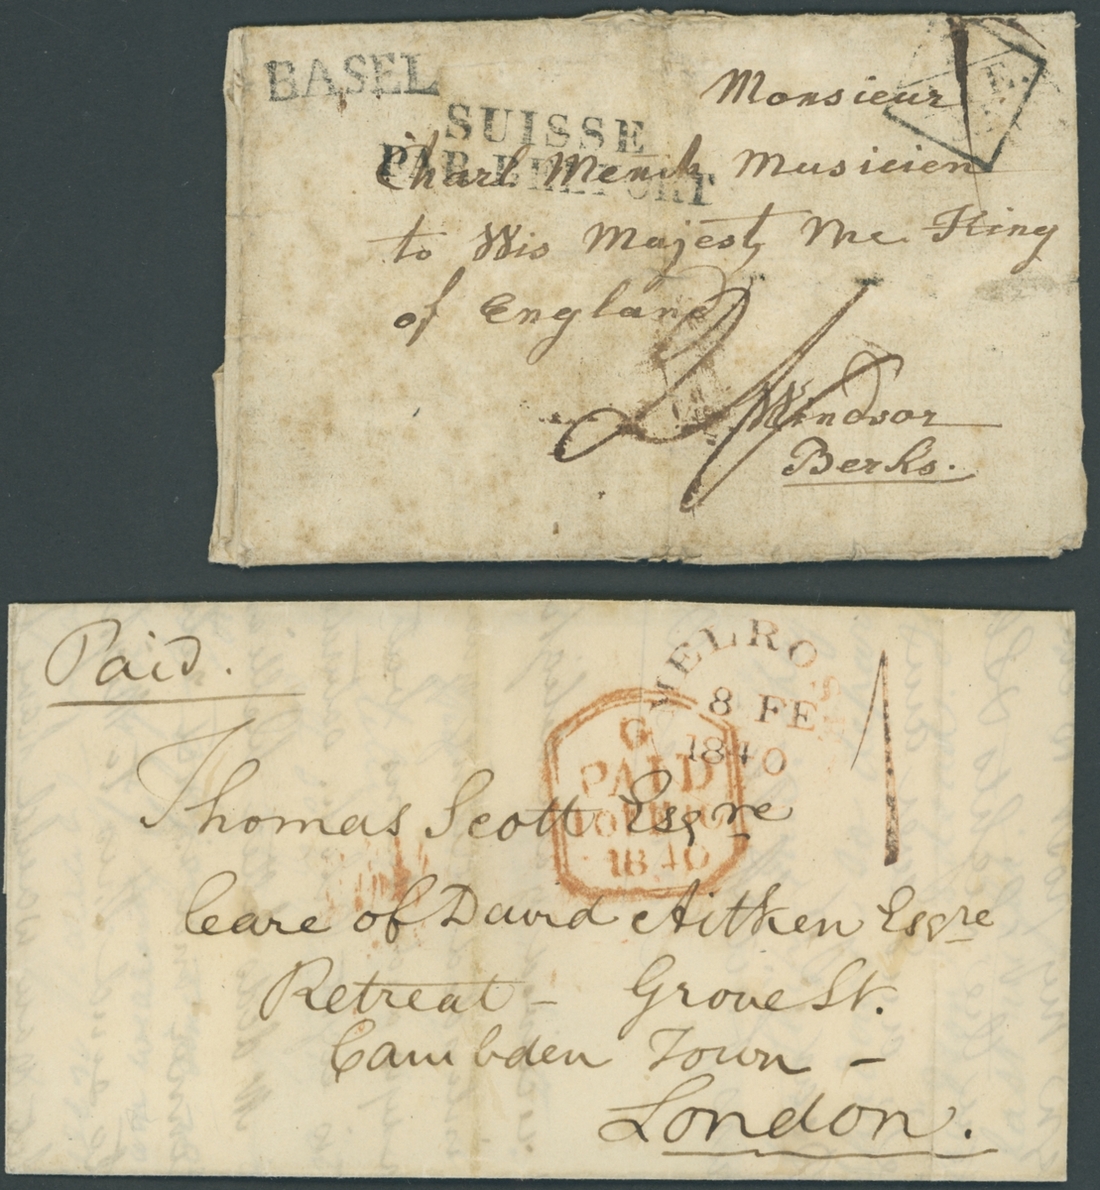 BASEL
SUISSE
PAR BELFORT
Monsieur
Charl. Menk Musicien
to His Majesty the King
of England
Windsor
Berks.
Paid.
MELROSE
8 FE
1840
1
G
PAID
10 FEB
1840
Thomas Scott Esqre
Care of David Aitken Esqre
Retreat - Grove St.
Cambden Town -
London.